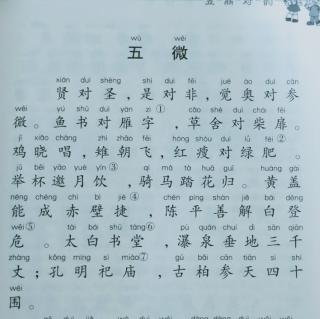 五言对韵
wǔ wēi
五 微
xián duì shèng shì duì fēi jué ào duì cān
贤对圣，是对非，觉奥对参
wēi yú shū duì yàn zì ① cǎo shè duì chái fēi
微。鱼书对雁字，草舍对柴扉。
jī xiǎo chàng zhì zhāo fēi hóng shòu duì lǜ féi ②
鸡晓唱，雉朝飞，红瘦对绿肥。
jǔ bēi yāo yuè yǐn ③ qí mǎ tà huā guī huáng gài
举杯邀月饮，骑马踏花归。黄盖
néng chéng chì bì jié ④ chén píng shàn jiě bái dēng
能成赤壁捷，陈平善解白登
wēi ⑤ tài bái shū táng ⑥ pù quán chuí dì sān qiān
危。太白书堂，瀑泉垂地三千
zhàng kǒng míng sì miào ⑦ gǔ bǎi cān tiān sì shí
丈；孔明祀庙，古柏参天四十
wéi
围。